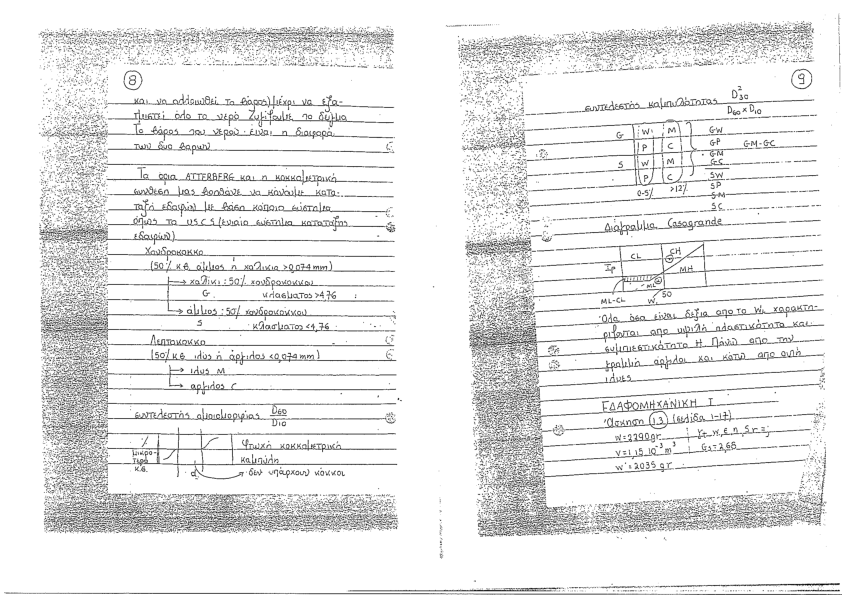 8
και να αλλοιωθεί το βάρος) μέχρι να εξα-
τμιστεί όλο το νερό. Ζυγίζουμε το δείγμα
Το βάρος του νερού είναι η διαφορά
των δύο βαρων.
Τα ορια ATTERBERG και η κοκκομετρική
συνθεση μας βοηθανε να κάνουμε κατα-
ταξη εδαφων με βαση κάποιο σύστημα
όπως το USCS (ενιαίο σύστημα καταταξης
εδαφων)
Χονδροκοκκο
(50% κ.β. αμμος ή χαλικια >0,074mm)
→ χαλίκι : 50% χονδροκοκκου
G κλασματος >4,76
→ άμμος : 50% χονδροκοκκου
S κλασματος <4,76
Λεπτοκοκκο
(50% κ.β. ιλυς ή άργιλος <0,074mm)
→ ιλυς M
→ αργιλος C
συντελεστής ομοιομορφίας D60
D10
% μικρο-
τερα
κ.β.
d
Φτωχή κοκκομετρική
καμπύλη
δεν υπάρχουν κόκκοι
9
συντελεστής καμπυλότητας D²30
D60 x D10
G W M GW
P C GP GM-GC
GM
S W M GC
P C SW
0-5% >12% SP
SM
SC
Διάγραμμα Casagrande
CL CH
Ip MH
ML
ML-CL WL 50
Όλα όσα είναι δεξια απο το WL χαρακτη-
ριζονται απο υψηλή πλαστικότητα και
συμπιεστικότητα Η. Πάνω απο την
γραμμή άργιλοι και κάτω απο αυτή
ιλυες
ΕΔΑΦΟΜΗΧΑΝΙΚΗ Ι
Άσκηση 1.3 (σελίδα 1-17)
W=2290gr γτ, w, e, n, Sr=;
V=1,15.10⁻³ m³ Gs=2,68
W'=2035 gr